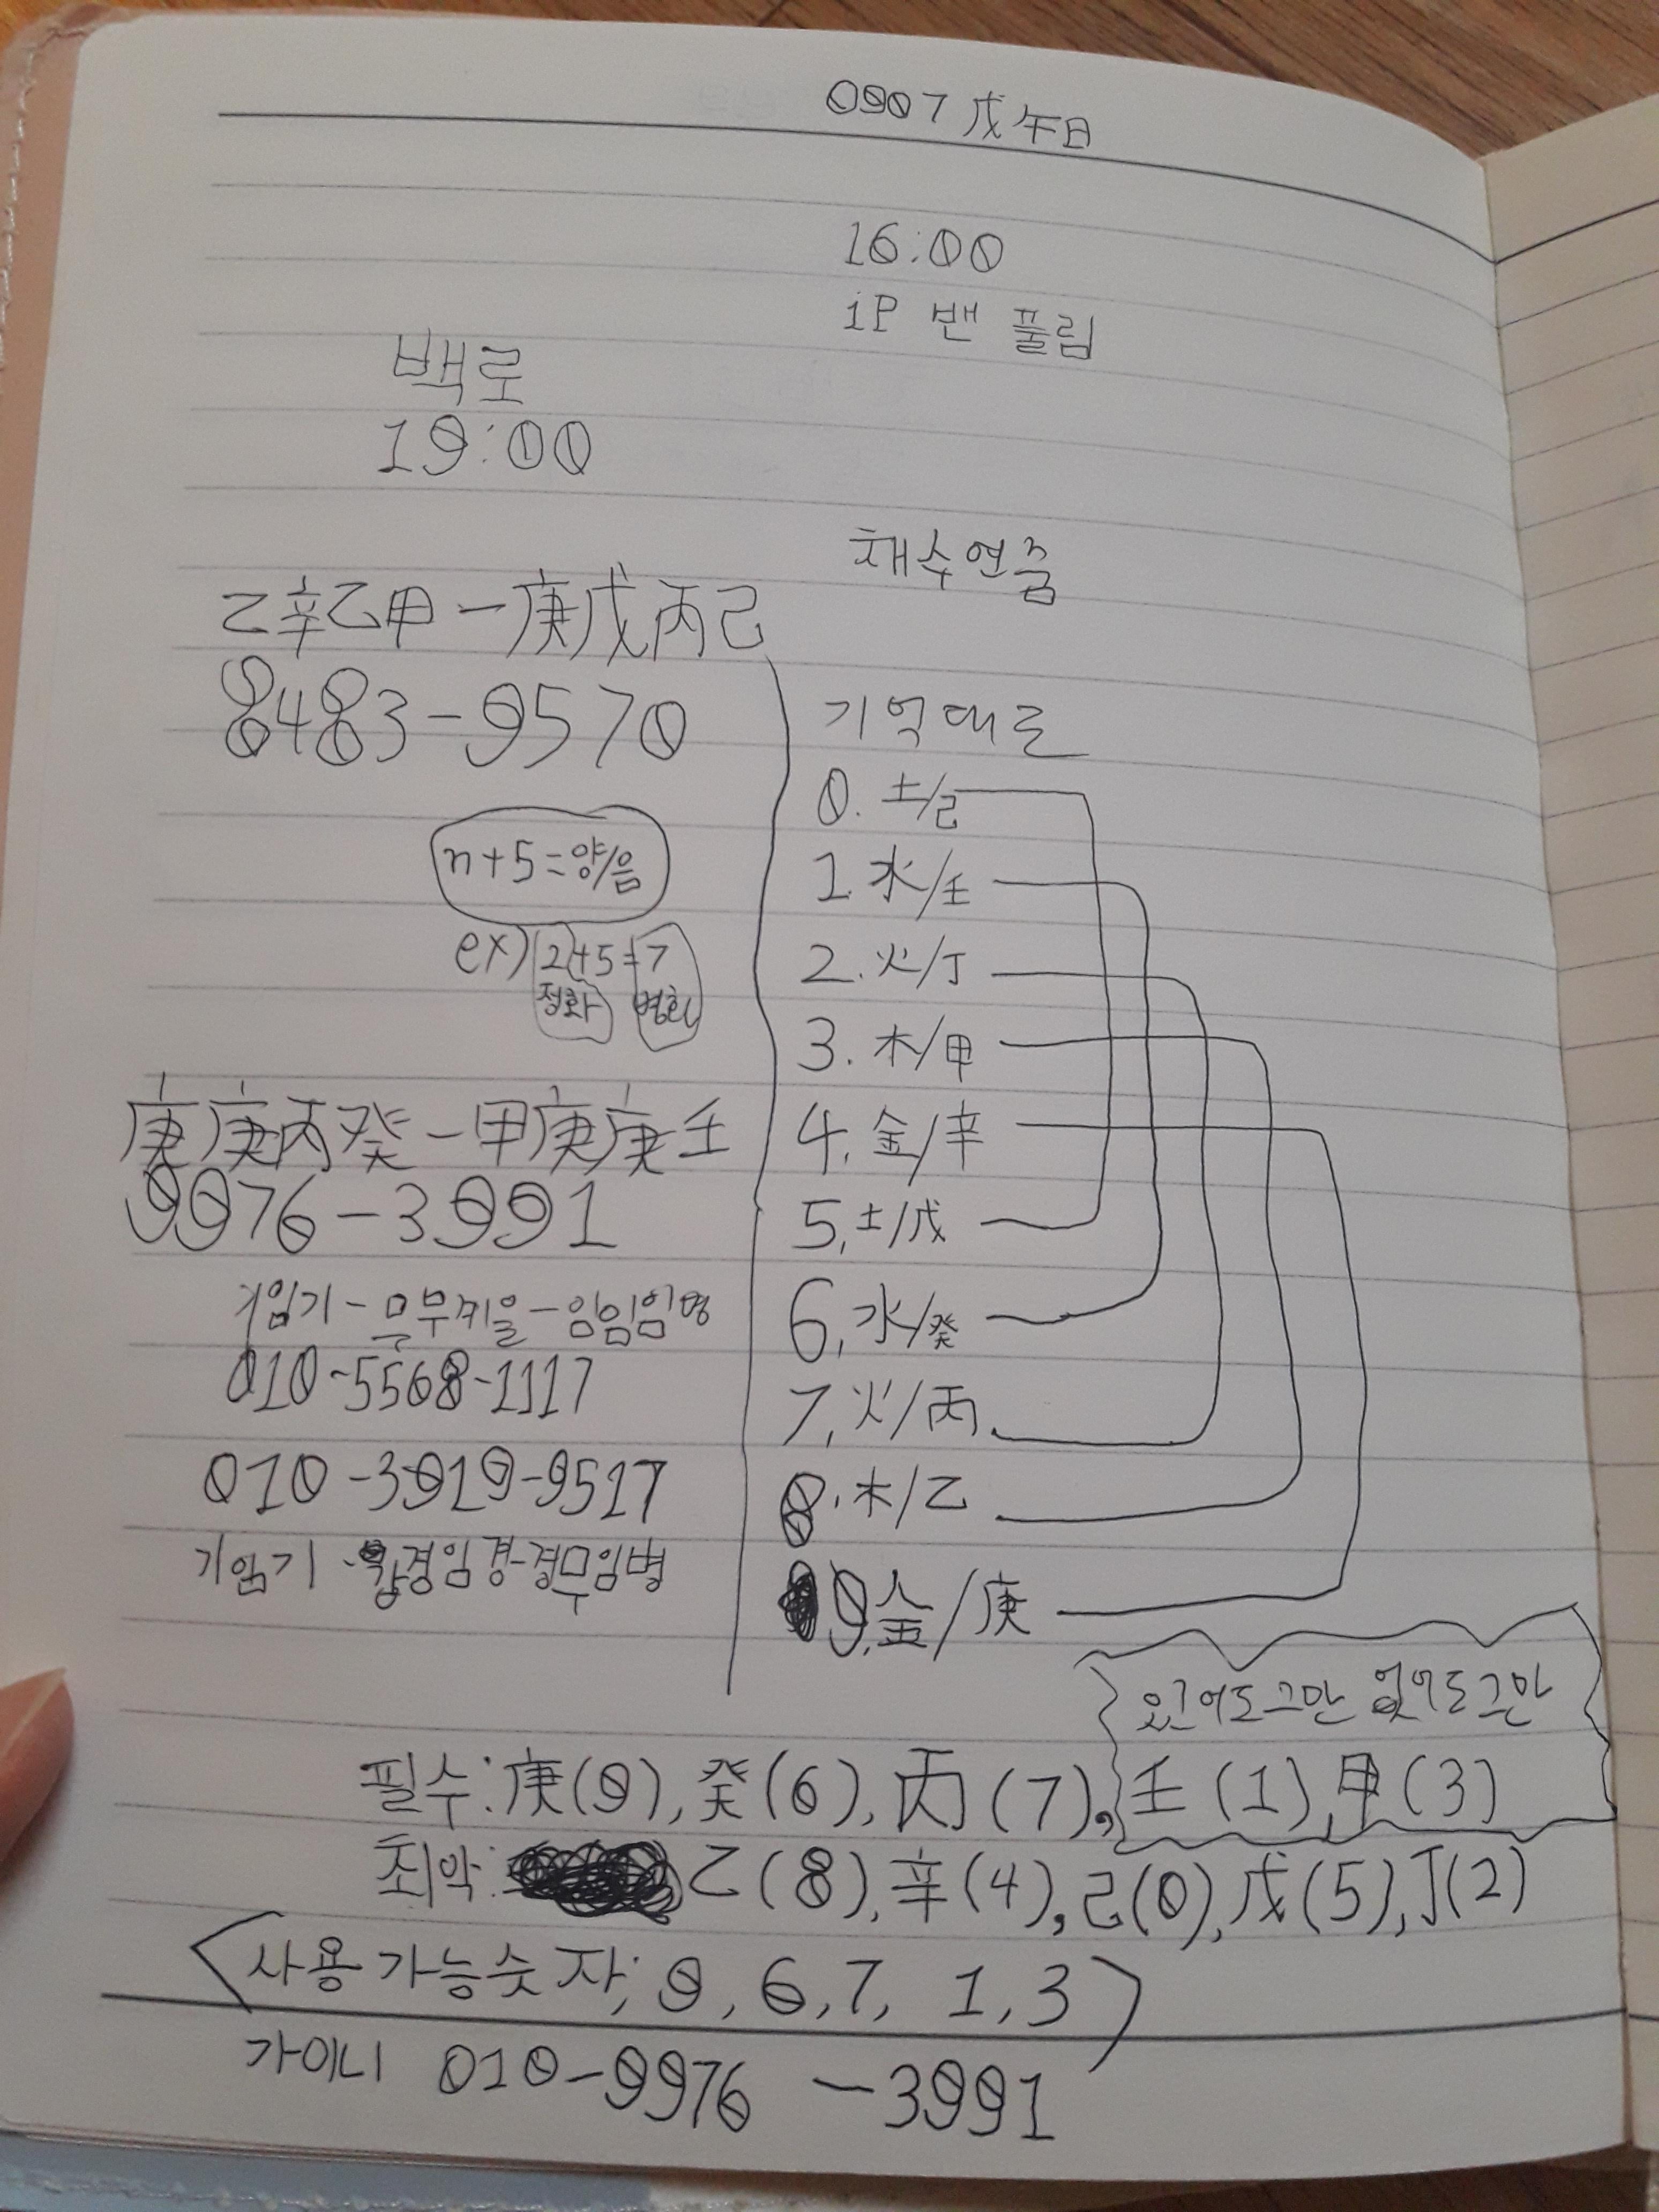 0907 戊午日
16:00
1P 밴 풀림
백로
19:00
채수연줌
乙辛乙甲 - 庚戊丙己
8483 - 9570
n+5=양/음
ex) 2+5=7
정화 병화
庚庚丙癸 - 甲庚庚壬
9976 - 3991
기임기 - 무무계을 - 임임임병
010-5568-1117
010-3919-9517
기임기 - 갑경임경-경무임병
기억대로
0. 土/己
1. 水/壬
2. 火/丁
3. 木/甲
4. 金/辛
5. 土/戊
6. 水/癸
7. 火/丙
8. 木/乙
9. 金/庚
있어도그만 없어도그만
필수: 庚(9), 癸(6), 丙(7), 壬(1), 甲(3)
최악: 乙(8), 辛(4), 己(0), 戊(5), 丁(2)
사용가능숫자; 9, 6, 7, 1, 3
가이니 010-9976 - 3991